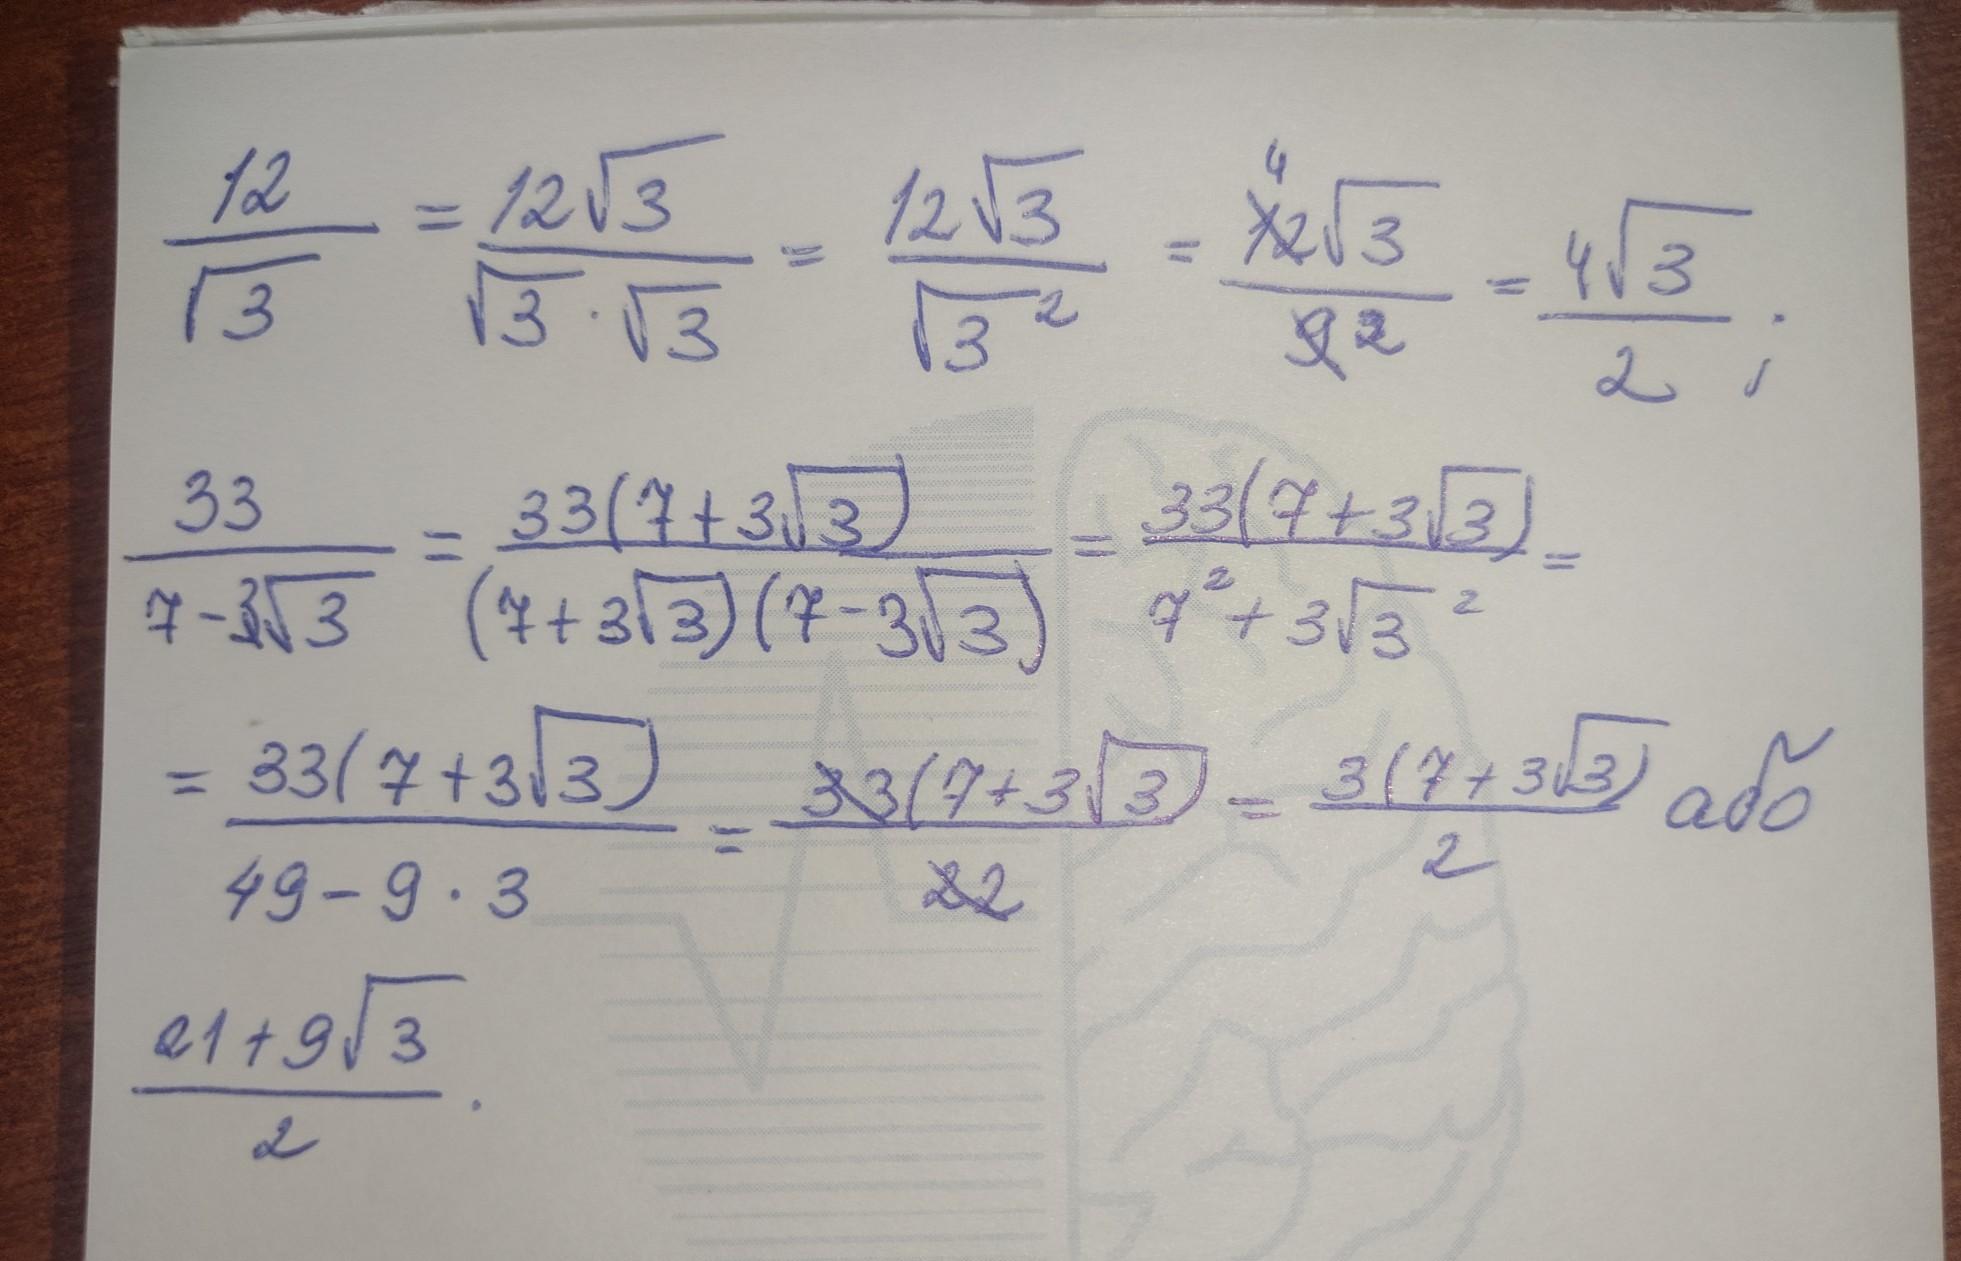 12/√3 = 12√3/(√3 · √3) = 12√3/√3² = 12√3/9 2 = 4√3/2 ;
33/(7-3√3) = 33(7+3√3)/((7+3√3)(7-3√3)) = 33(7+3√3)/(7²+3√3²) =
= 33(7+3√3)/(49-9·3) = 33(7+3√3)/22 = 3(7+3√3)/2 або
(21+9√3)/2 .